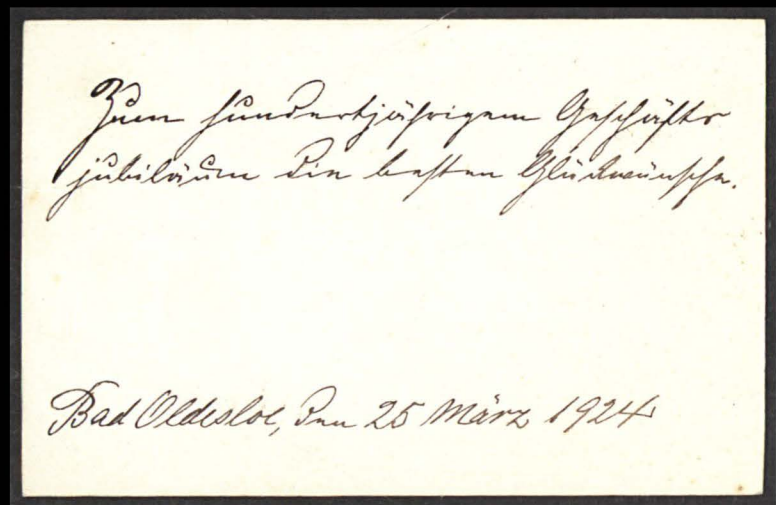 Zum hundertjährigem Geschäfts
jubiläum die besten Glückwünsche.
Bad Oldesloe, den 25 März 1924